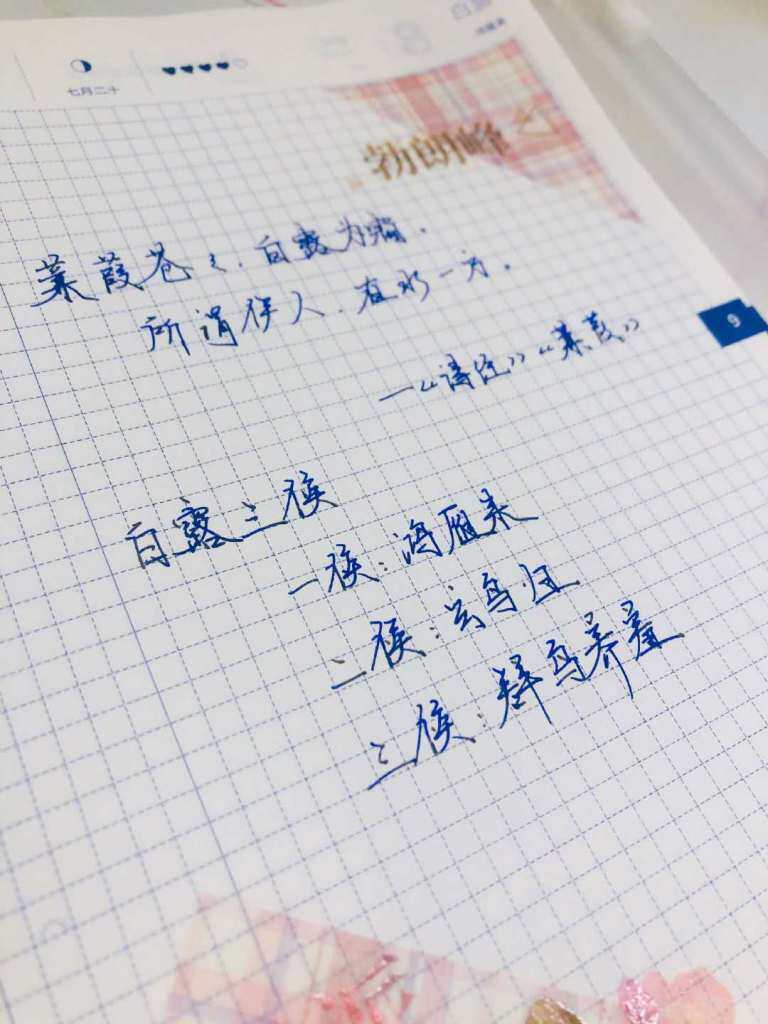 白露
七月二十
勃朗峰
蒹葭苍々.白露为霜.
所谓伊人.在水一方.
9
—《诗经》《蒹葭》
白露三候
一候:鸿雁来
二候:玄鸟归
三候:群鸟养羞